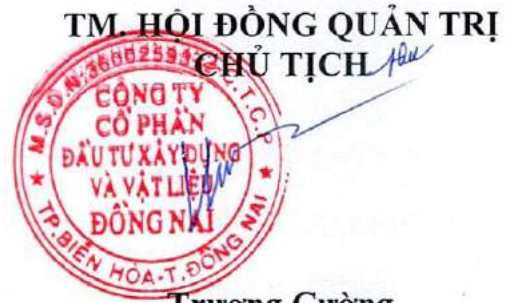 TM. HỘI ĐỒNG QUẢN TRỊ
CHỦ TỊCH
CÔNG TY
CỔ PHẦN
ĐẦU TƯ XÂY DỰNG
VÀ VẬT LIỆU
ĐỒNG NAI
TP.BIÊN HÒA-T.ĐỒNG NAI
Trương Cường